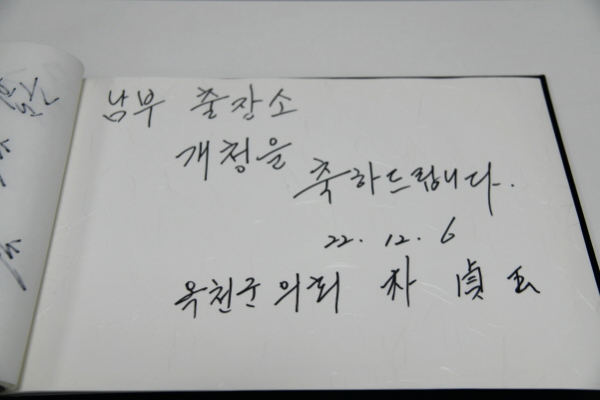 남부 출장소
개청을
축하드립니다.
22. 12. 6
옥천군의회 朴 貞 玉